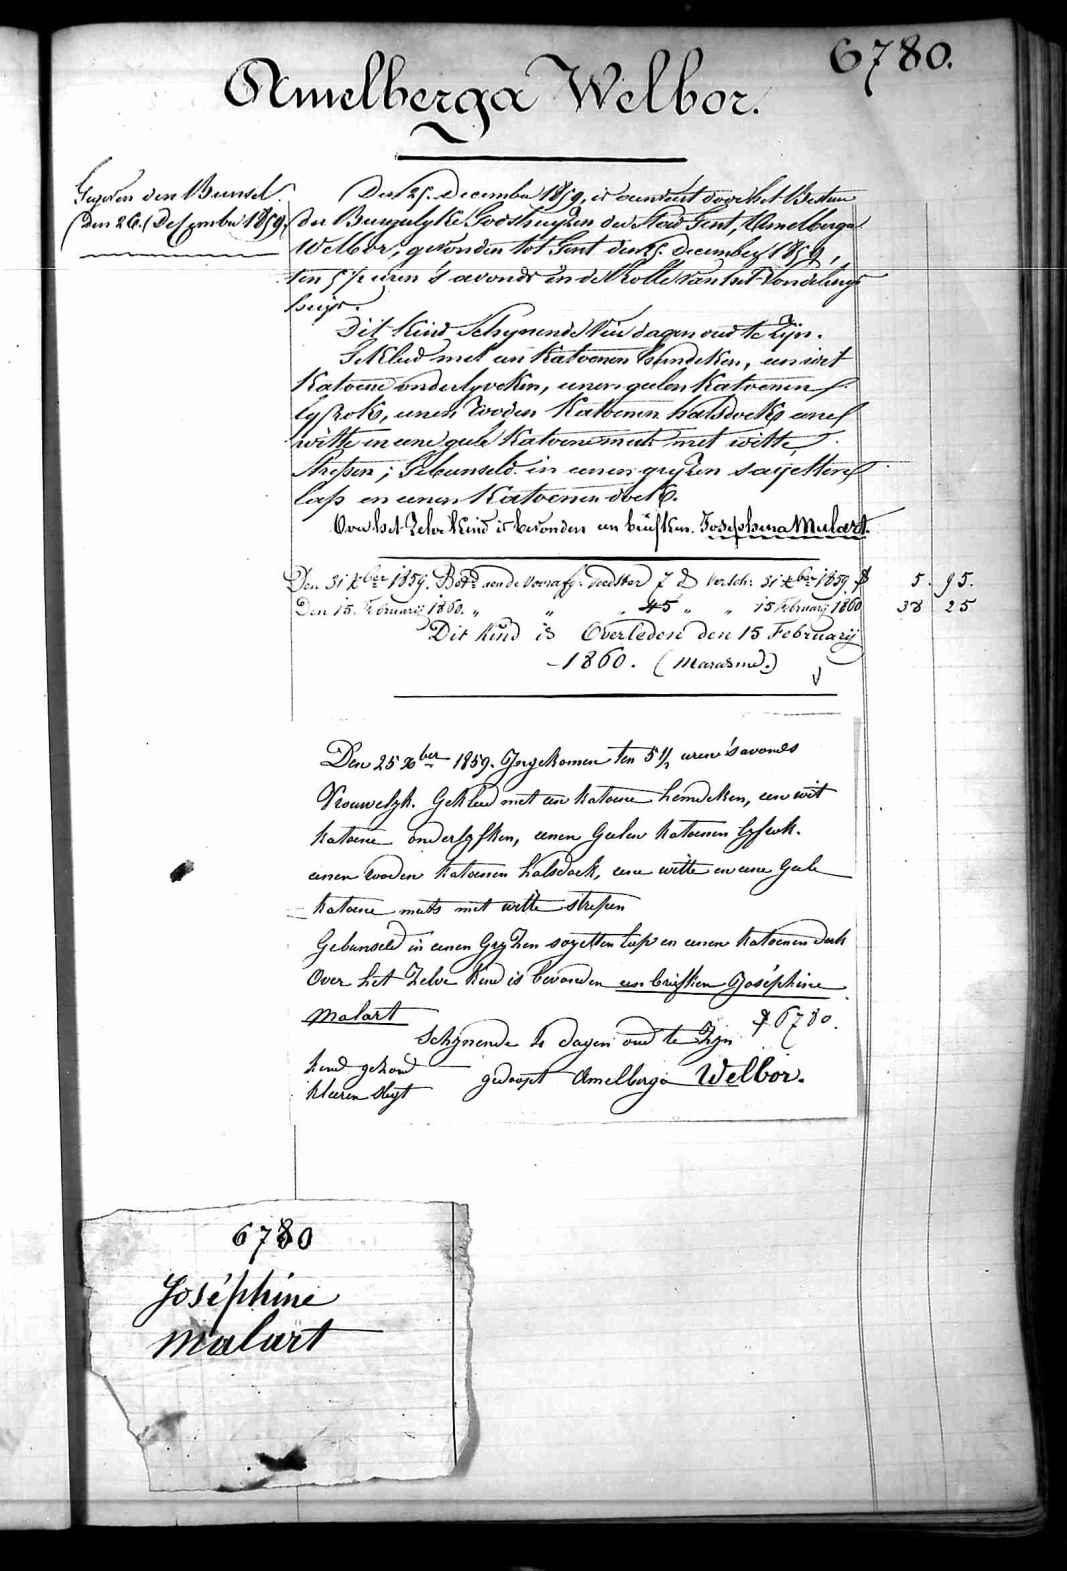 6780.
Amelberga Welbor.
Gegeven den Bunsel
Den 26 Desember 1859.
Den 25 December 1859, is door het Bestuur
der Burgelyke Godshuyzen der Stad Gent, Amelberga
Welbor, gevonden tot Gent den 25 December 1859,
ten 5 1/2 uren s'avonds in de Rolle van het Vondelings
huys.
Dit kind schynende dagen oud te zyn.
Gekleed met een katoenen hemdeken, een wit
katoene onderlyveken, eenen geelen katoenen
lyfrok, eenen rooden katoenen halsdoek, eene
witte en eene geele katoene muts met witte
strepen; Gebunseld in eenen gryzen sayetten
lap en eenen katoenen doek.
Over het zelve kind is bevonden een briefken. Josephina Malart.
Den 31 Xber 1859. voedster 7 D versch: 31 Xber 1859 5. 95.
Den 15. Februarij 1860. " " " 45 " " 15 Februarij 1860 38 25
Dit kind is Overleden den 15 Februarij
1860. (Marasme.)
Den 25 Xber 1859. Ingekomen ten 5 1/2 uren s'avonds
Vrouwelyk. Gekleed met een katoene hemdeken, een wit
katoene onderlyfken, eenen Geelen katoenen lyfrok.
eenen rooden katoenen halsdoek, eene witte en eene Geele
katoene muts met witte strepen
Gebunseld in eenen Gryzen sayetten lap en eenen katoenen doek
Over het zelve kind is bevonden een briefken Joséphine
Malart
6780.
Schynende dagen oud te Zyn
kind gezond
gedoopt Amelberga Welbor.
kleeren slegt
6780
Joséphine
Malart